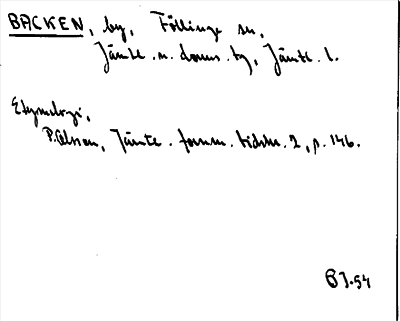 BACKEN, by, Föllinge sn,
Jämtl. n. doms. tg, Jämtl. l.
Etymologi,
P. Olsson, Jämtl. fornm. tidskr. 2, p. 146.
BJ-54